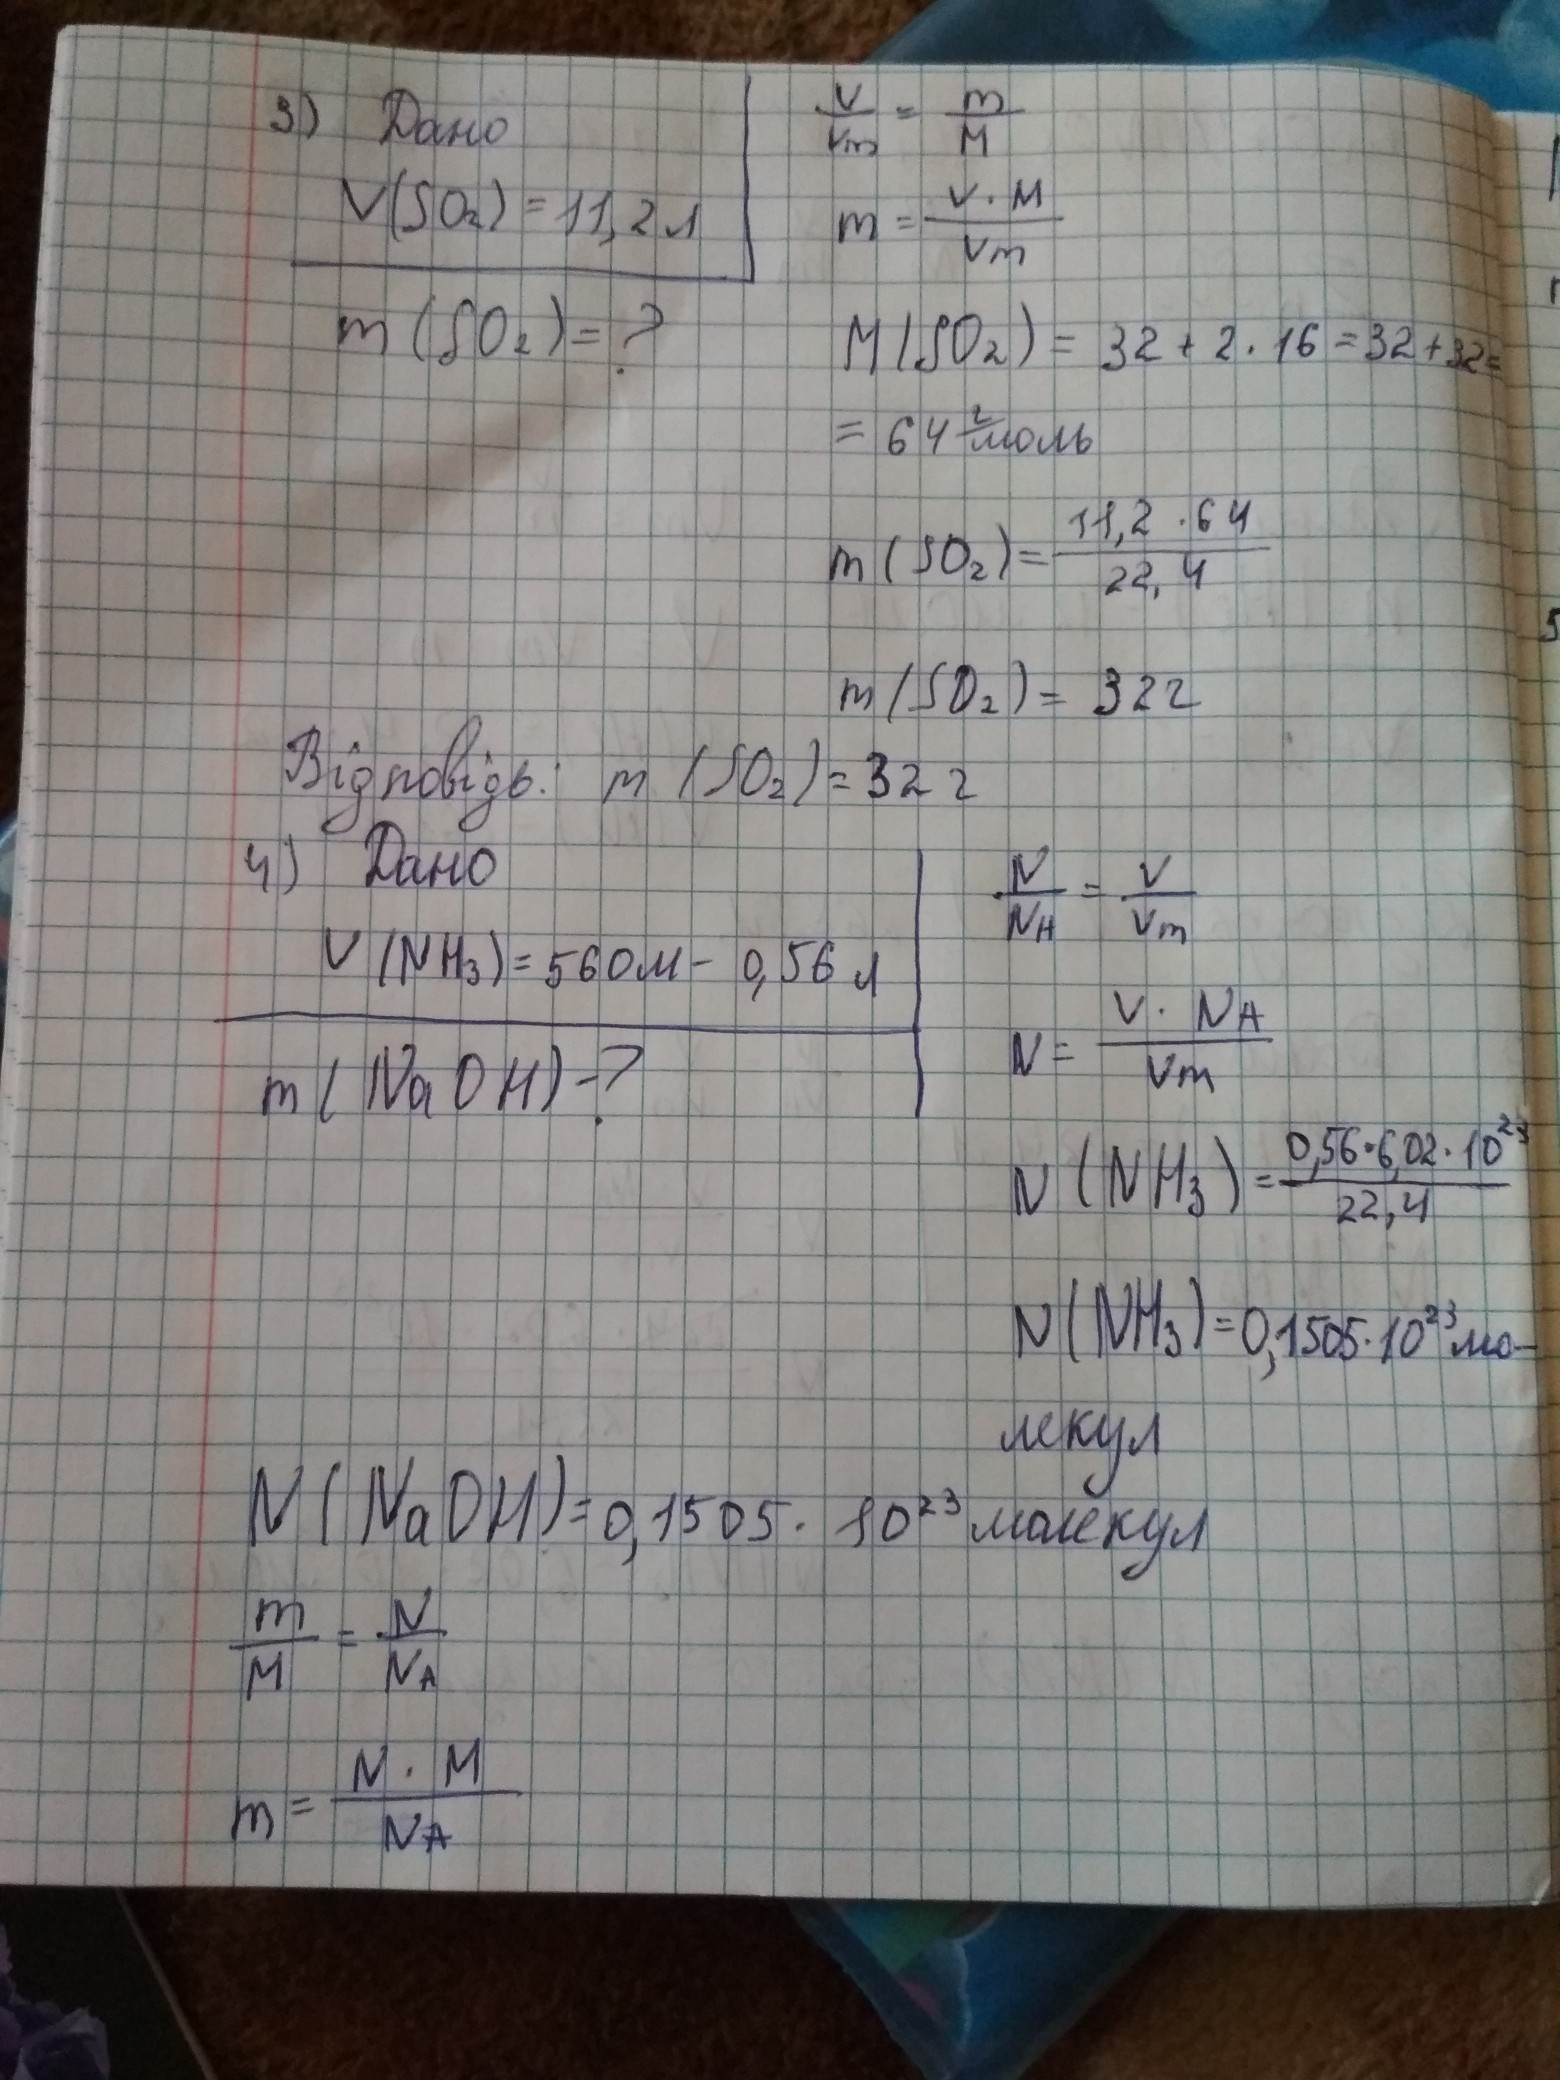 3) Дано
V(SO₂) = 11,2 л
m(SO₂) = ?
V/Vm = m/M
m = V · M/Vm
M(SO₂) = 32 + 2 · 16 = 32 + 32 =
= 64 г/моль
m(SO₂) = 11,2 · 64/22,4
m(SO₂) = 32 г
Відповідь: m(SO₂) = 32 г
4) Дано
V(NH₃) = 560м - 0,56 л
m(NaOH) - ?
N/NA = V/Vm
N = V · NA/Vm
N(NH₃) = 0,56 · 6,02 · 10²³/22,4
N(NH₃) = 0,1505 · 10²³ мо-
лекул
N(NaOH) = 0,1505 · 10²³ молекул
m/M = N/NA
m = N · M/NA